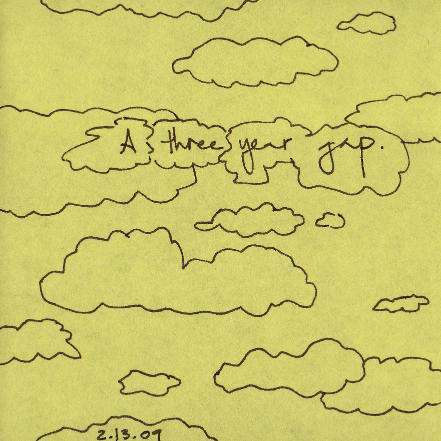 A three year gap.
2.13.09